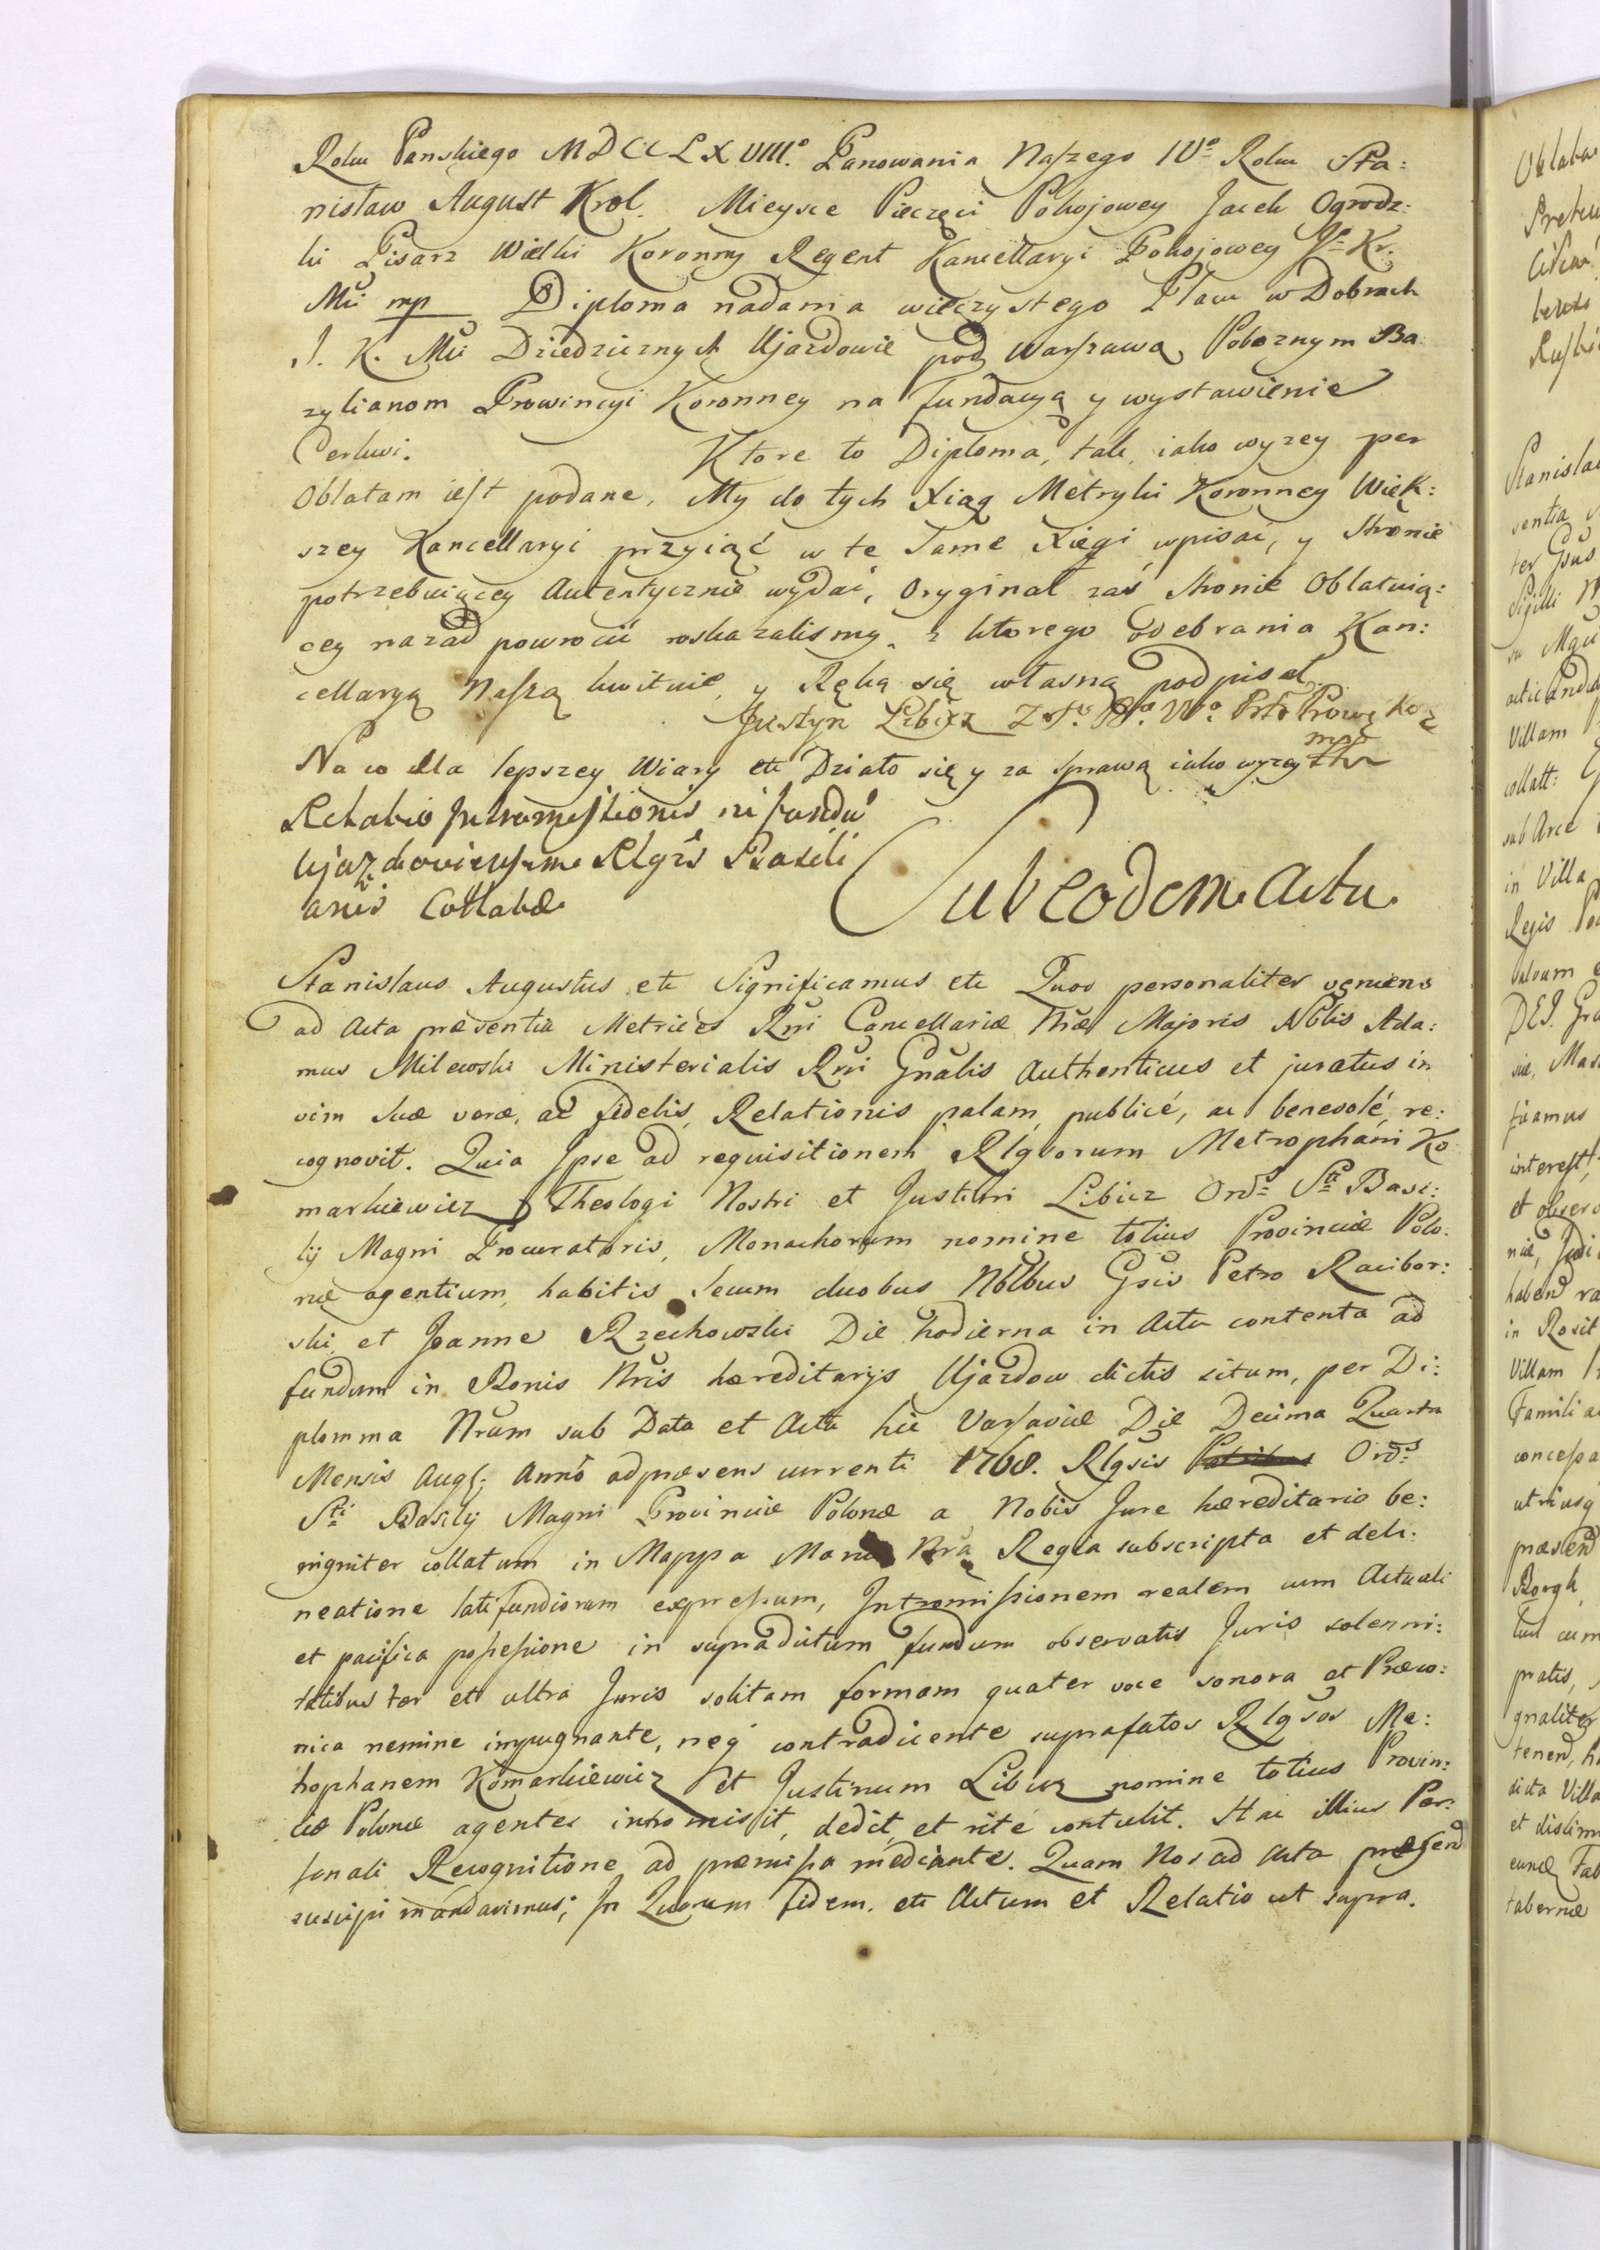 Roku Panskiego MDCCLXVIII.° Panowania Naszego IV° Roku Sta:
nisław August Krol. Mieysce Pieczęci Pokojowey Jacek Ogrodz:
ki Pisarz Wielki Koronny Regent Kancellaryi Pokojowey Jº Kr.
Mci mp Diploma nadania wieczystego Placu w Dobrach
J. K. Mci Dziedzicznych Ujazdowie pod Warszawą Poboznym Ba
zylianom Prowincyi Koronney na Fundacyą y wystawienie
Cerkwi. Ktore to Diploma, tak iako wyzey per
Oblatam iest podane, My do tych Xiąg Metryki Koronney Więk:
szey Kancellaryi przyiąć w te Same Xięgi wpisać, y Stronie
potrzebuiącey Autentycznie wydać, Oryginał zaś Stronie Oblatuią:
cey nazad powrocić roskazalismy, z ktorego Odebrania Kan:
cellaryą Naszą kwituie, y Ręką się własną podpisał.
Justyn Libicz Z. S. B. W.
Na co dla lepszey Wiary etc Działo się y za Sprawą iako wyzey
Relatio Intromissionis in fundu
Ujazdoviensem Rlgis Basili
anis Collatae
Sub eodem Actu.
Stanislaus Augustus etc Significamus etc Quod personaliter veniens
ad Acta præsentia Metrices Rni Cancellariæ Nræ Majoris Nblis Ada:
mus Milewski Ministerialis Rni Gnalis Authenticus et juratus in
vim Suæ veræ, ac fidelis, Relationis palam, publicé, ac benevolé, re:
cognovit. Quia Ipse ad requisitionem Rlgsorum Metrophani Ko
markiewicz Theologi Nostri et Justini Libicz Ordis Sti Basi:
lij Magni Procuratoris, Monachorum nomine totius Provinciæ Polo:
næ agentium, habitis Secum duobus Nblbus Gsis Petro Racibor:
ski, et Joanne Rzechowski Die hodierna in Actu contenta ad
fundum in Bonis Nris hæreditarijs Ujazdow dictis situm, per Di:
plomma Nrum sub Data et Actu hic Varsaviæ Die Decima Quarta
Mensis Augs: Anno ad præsens currenti 1768. Rlgsis Patribus Ordis
Sti Basilij Magni Provinciæ Polonæ a Nobis Jure hæreditario be:
nigniter collatum in Mappa Manu Nra Regia subscripta et deli:
neatione latifundiorum expressum, Intromissionem realem cum Actuali
et pacifica possessione in supradictum fundum observatis Juris solenni:
tatibus ter et ultra Juris solitam formam quater voce sonora et Præco:
nica nemine impugnante, neq contradicente suprafatos Rlgsos Me:
trophanem Komarkiewicz et Justinum Libicz nomine totius Provin:
ciæ Polonæ agentes intromisit, dedit, et rité contulit. Hac illius Per:
sonali Recognitione ad præmissa mediante. Quam Nos ad Acta præsend
suscipi mandavimus; In Quorum fidem. etc Actum et Relatio ut supra.